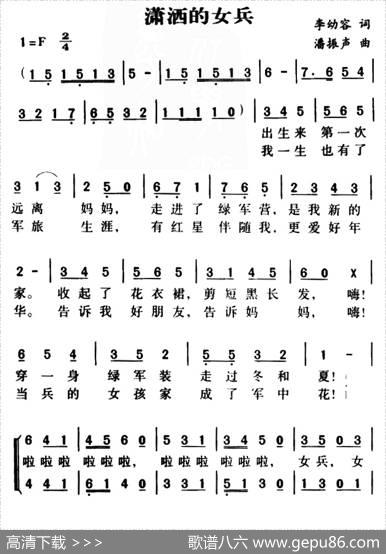 潇洒的女兵
1=F 2/4
李幼容 词
潘振声 曲
(1 5 1 5 1 3 | 5 - | 1 5 1 5 1 3 | 6 - | 7. 6 5 4 |
3 2 1 7 | 6 1 3 2 | 1 1 1 1 0) | 3 4 5 | 5 6 5 |
出生来 第一次
我一生 也有了
3 1 3 | 2 5 0 | 6 7 1 | 7 6 5 | 2 3 4 3 |
远离 妈妈, 走进了 绿军营, 是我新的
军旅 生涯, 有红星 伴随我, 更爱好年
2 - | 3 4 5 | 6 1 3 | 2 1 2 3 4 5 | 6 0 X |
家。 收起了 花衣裙, 剪短黑长 发, 嗨!
华。 告诉我 好朋友, 告诉妈 妈, 嗨!
6 5 4 | 3 1 2 | 5 5 3 2 | 1 - |
穿一身 绿军装 走过冬和 夏!
当兵的 女孩家 成了军中 花!
6 4 1 | 4 5 6 0 | 5 4 3 | 2 3 1 0 | 3 5 0 1 |
啦啦啦 啦啦啦, 啦啦啦 啦啦啦, 女兵, 女
4 4 1 | 2 3 4 0 | 3 2 1 | 5 6 1 0 | 1 3 0 1 |
高清下载 >>>
歌谱八六 www.gepu86.com